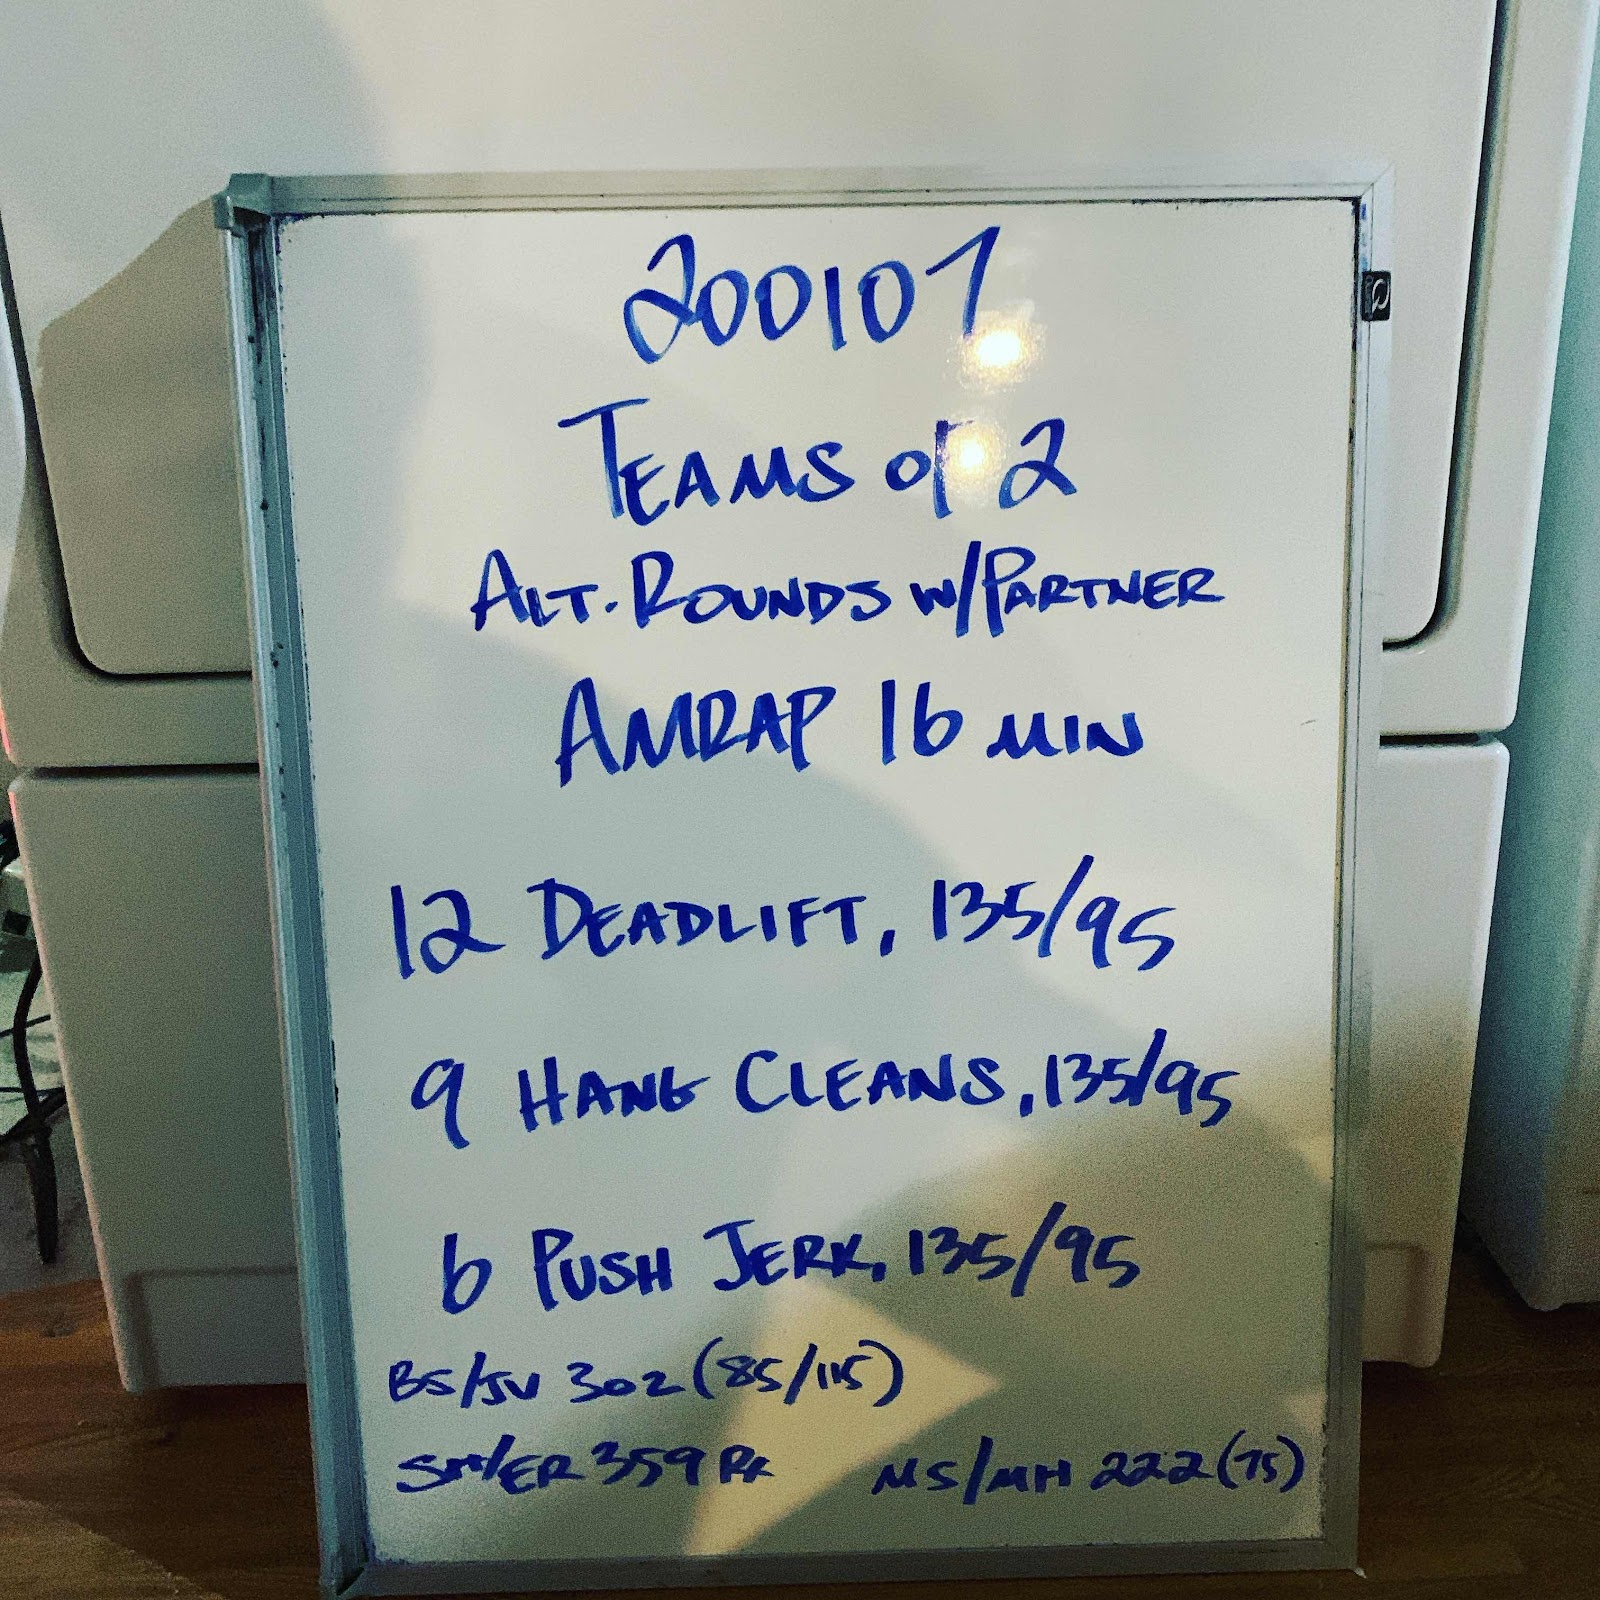 200107
TEAMS of 2
ALT. ROUNDS W/PARTNER
AMRAP 16 MIN
12 DEADLIFT, 135/95
9 HANG CLEANS, 135/95
6 PUSH JERK, 135/95
BS/JV 302 (85/115)
SM/ER 359 RX
MS/MH 222 (75)